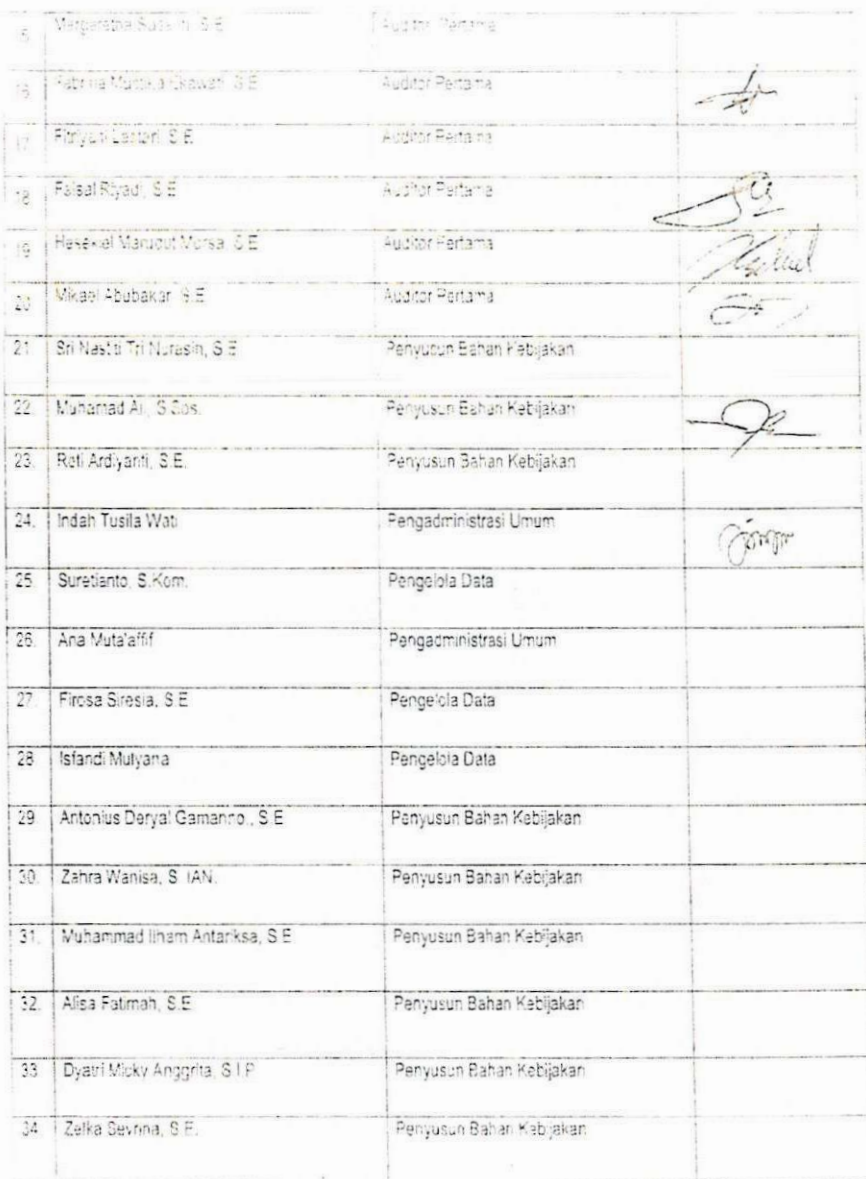 Auditor Pertama
16 Auditor Pertama
17 Fitriyani Lestari, S.E Auditor Pertama
18 Faisal Riyadi, S.E Auditor Pertama
19 Hesekiel Marudut Morsa, S.E Auditor Pertama
20 Mikael Abubakar, S.E Auditor Pertama
21 Sri Nastiti Tri Nurasih, S.E Penyusun Bahan Kebijakan
22. Muhamad Ali, S.Sos. Penyusun Bahan Kebijakan
23. Reti Ardiyanti, S.E. Penyusun Bahan Kebijakan
24. Indah Tusila Wati Pengadministrasi Umum
25. Suretianto, S.Kom. Pengelola Data
26. Ana Muta'affif Pengadministrasi Umum
27. Firosa Siresia, S.E Pengelola Data
28 Isfandi Mulyana Pengelola Data
29 Antonius Deryal S.E Penyusun Bahan Kebijakan
30. Zahra Wanisa, S. IAN. Penyusun Bahan Kebijakan
31. Muhammad Ilham Antariksa, S.E Penyusun Bahan Kebijakan
32. Alisa Fatimah, S.E Penyusun Bahan Kebijakan
33 Dyatri Micky Anggrita, S.I.P Penyusun Bahan Kebijakan
34. Zelka Sevrina, S.E. Penyusun Bahan Kebijakan